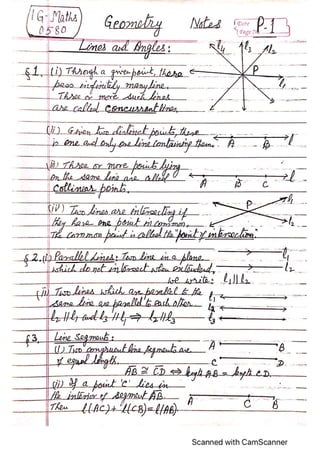 IG-Maths
0580
Geometry
Notes
Date
Page
P-1
Lines and Angles:
l4 l3 l2
P
l1
§1. (i) Through a given point, there
pass infinitely many line.
Three or more such lines
are called Concurrent lines.
(ii) Given two distinct points, there
is one and only one line containing them.
A B l
(iii) Three or more points lying
on the same line are called
Collinear points.
A B C l
(iv) Two lines are intersecting if
they have one point in common,
The common point is called the "point of intersection".
P l1
l2
§2. (i) Parallel Lines: Two line in a plane
which do not intersect when extended,
we write: l1 || l2
l1
l2
(ii) Two lines which are parallel to the
same line are parallel to each other
l2 || l1 and l3 || l1 ⇒ l2 || l3
l1
l2
l3
§3. Line Segments:
(i) Two congruent line segments are
of equal length.
A B
C D
AB ≅ CD ⇔ length AB = length CD.
(ii) If a point 'C' lies in
the interior of segment AB.
Then l(AC) + l(CB) = l(AB).
A C B
Scanned with CamScanner